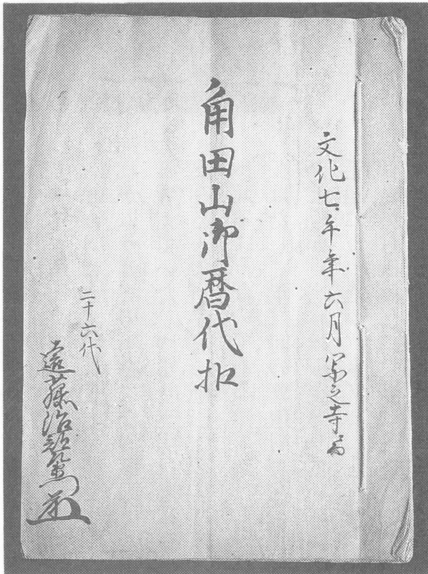 文化七午年六月写之寺ゟ
角田山御暦代扣
二十六代
遠藤治郎